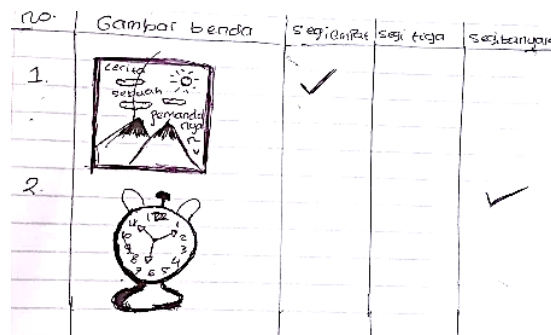 no. Gambar benda segi empat segi tiga segi banyak
1.
cerita
sebuah
pemanda
nga
n
2.
12
11 1
2
3
4
8
7 6 5